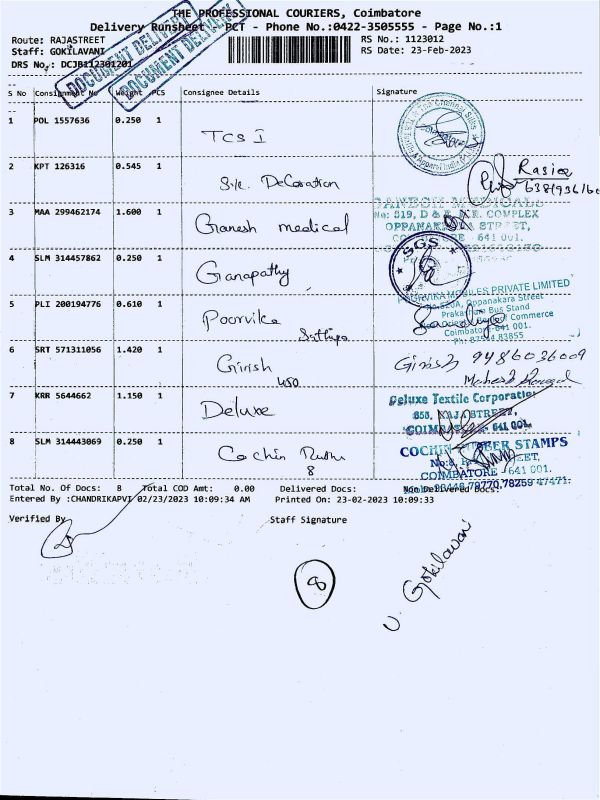 THE PROFESSIONAL COURIERS, Coimbatore
Delivery Runsheet PCT - Phone No.:0422-3505555 - Page No.:1
Route: RAJASTREET
RS No.: 1123012
Staff: GOKILAVANI
RS Date: 23-Feb-2023
DRS No.: DCJB112301201
DOCUMENT DELIVERY
DOCUMENT DELIVERY
S No Consignment No Weight PCS Consignee Details Signature
1 POL 1557636 0.250 1 TCS I
The Chennai Silks
2 KPT 126316 0.545 1 S.K. Decoration
Rasiea
3 MAA 299462174 1.600 1 Ganesh medical
GANESH MEDICALS
No: 319, D & COMPLEX
OPPANAKARA STREET,
641 001.
4 SLM 314457862 0.250 1 Ganapathy
SGS
5 PLI 200194776 0.610 1 Poorvika
POORVIKA MOBILES PRIVATE LIMITED
Oppanakara Street
Prakasham Bus Stand
Commerce
Coimbatore 641 001.
Ph: 83855
6 SRT 571311056 1.420 1 Girish
450
Girish 9486036009
7 KRR 5644662 1.150 1 Deluxe
Deluxe Textile Corporation
STREET,
COIMBATORE 641 001.
8 SLM 314443069 0.250 1 Cochin
8
COCHIN RUBBER STAMPS
STREET,
COIMBATORE - 641 001.
Total No. Of Docs: 8 Total COD Amt: 0.00 Delivered Docs: Non Delivered Docs:
Entered By :CHANDRIKAPVI 02/23/2023 10:09:34 AM Printed On: 23-02-2023 10:09:33
Verified By Staff Signature
8
V. Gokilavani